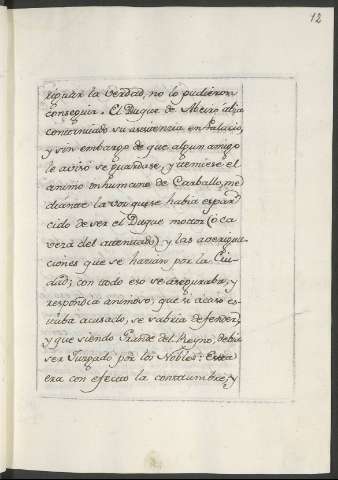 12
riguar la verdad, no lo pudieron
conseguir. El Duque de Meiro avia
continuado su asistencia en Palacio,
y sin embargo de que algun amigo
le avisó se guardase, y temiese el
animo inhumano de Carballo, me
diante la voz que se habia espar
cido de ser el Duque motor (o ca
veza del atentado) y las averigua-
ciones que se harian por la Ciu-
dad; con todo eso se aseguraba, y
respondia animoso, que si acaso es-
tuba acusado, se sabria defender,
y que siendo Grande del Reyno, debia
ser Juzgado por los Nobles: Esta
era con efecto la constumbre, y